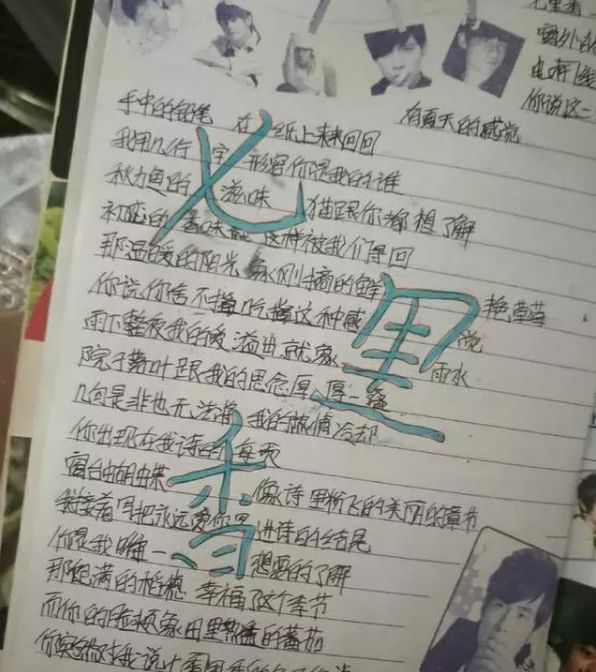 七里香
窗外的
电
你说这一
有夏天的感觉
手中的铅笔 在纸上来来回回
我用几行字形容你是我的谁
秋刀鱼的滋味 猫跟你都想了解
初恋的香味 这样被我们寻回
那温暖的阳光 象刚摘的鲜艳草莓
你说你舍不得吃掉这种感觉
雨下整夜我的爱溢出就象雨水
院子落叶跟我的思念厚厚一叠
几句是非也无法将我的热情冷却
你出现在我诗的每一页
窗台蝴蝶 像诗里纷飞的美丽的章节
我接着写把永远爱你写进诗的结尾
你是我唯一想要的了解
那饱满的稻穗 幸福了这个季节
而你的脸颊象田里熟透的蕃茄
你突然对我说七里香的名字
七里香